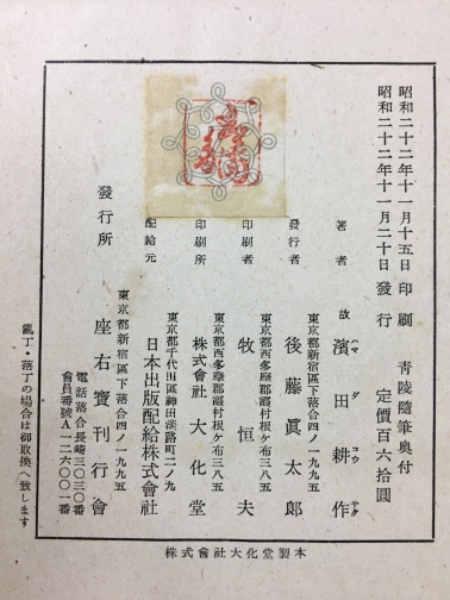 昭和二十二年十一月十五日 印刷 青陵隨筆奥付
昭和二十二年十一月二十日 發行 定價百六拾圓
著者 故 濱田耕作
ハマ ダ コウ サク
東京都新宿區下落合四ノ一九九五
發行者 後藤眞太郎
東京都西多摩郡霞村根ケ布三八五
印刷者 牧恒夫
東京都西多摩郡霞村根ケ布三八五
印刷所 株式會社 大化堂
東京都千代田區神田淡路町二ノ九
配給元 日本出版配給株式會社
東京都新宿區下落合四ノ一九九五
發行所 座右寶刊行會
電話落合長崎三〇三〇番
會員番號A一二六〇〇一番
亂丁・落丁の場合は御取換へ致します
株式會社大化堂製本